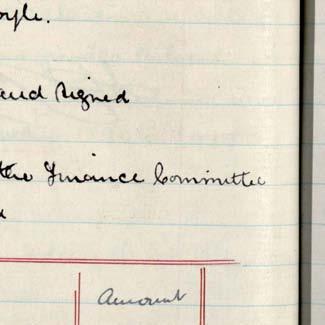 oyle.
and signed
the Finance Committee
Amount